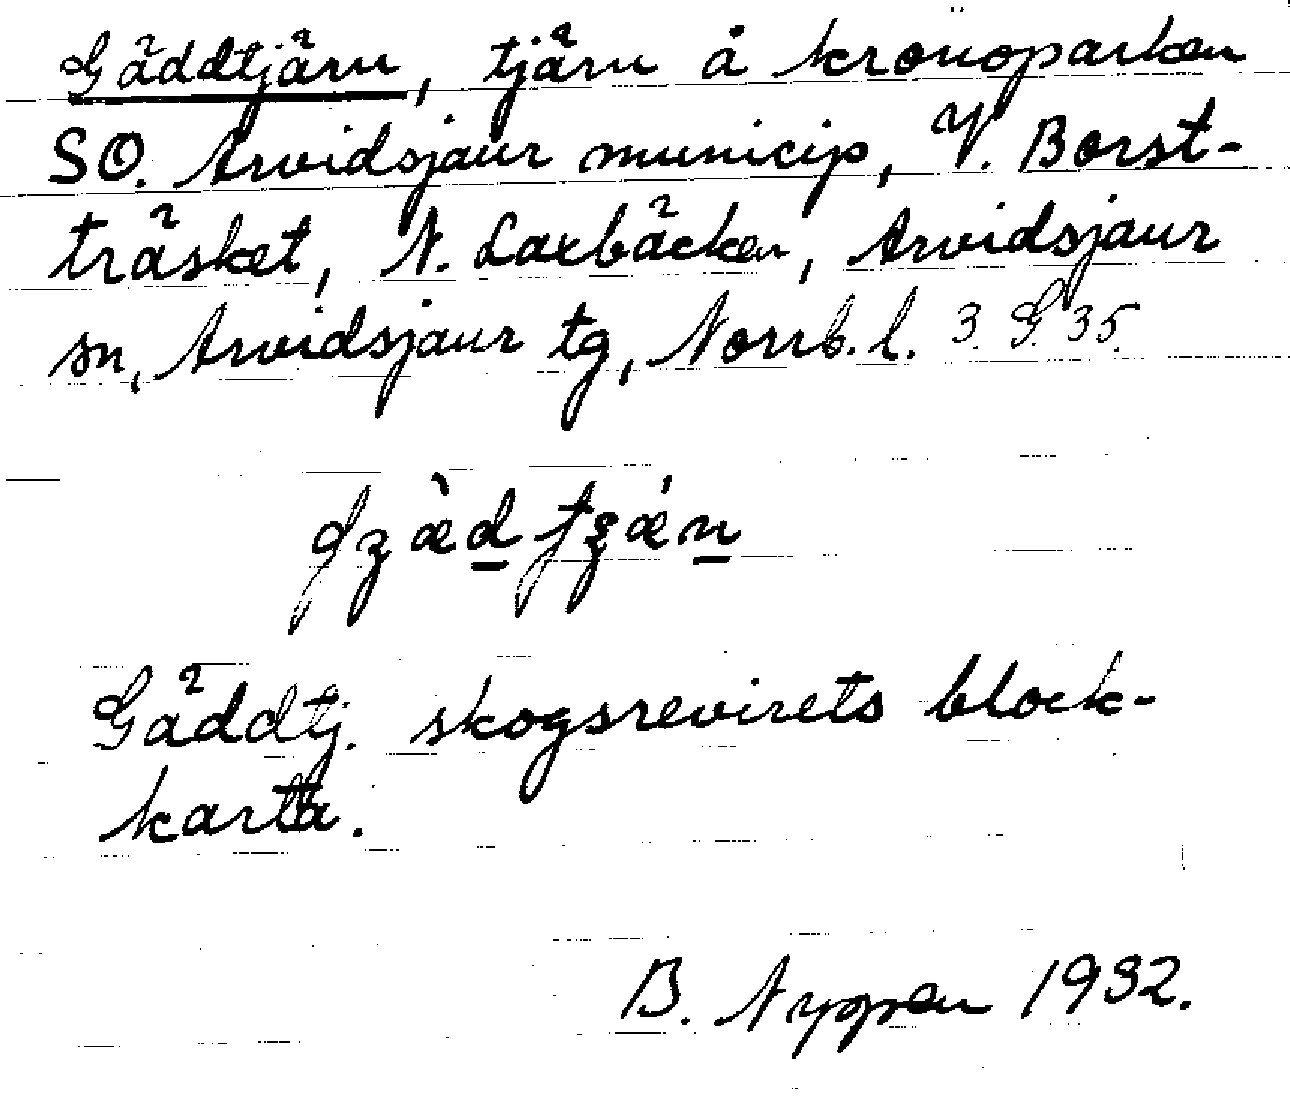 Gäddtjärn, tjärn å kronoparken
SO. Arvidsjaur municip, V. Borst-
träsket, N. Laxbäcken, Arvidsjaur
sn, Arvidsjaur tg, Norrb. l. 3. S. 35.
Gäddtj. skogsrevirets block-
karta.
B. Nygren 1932.